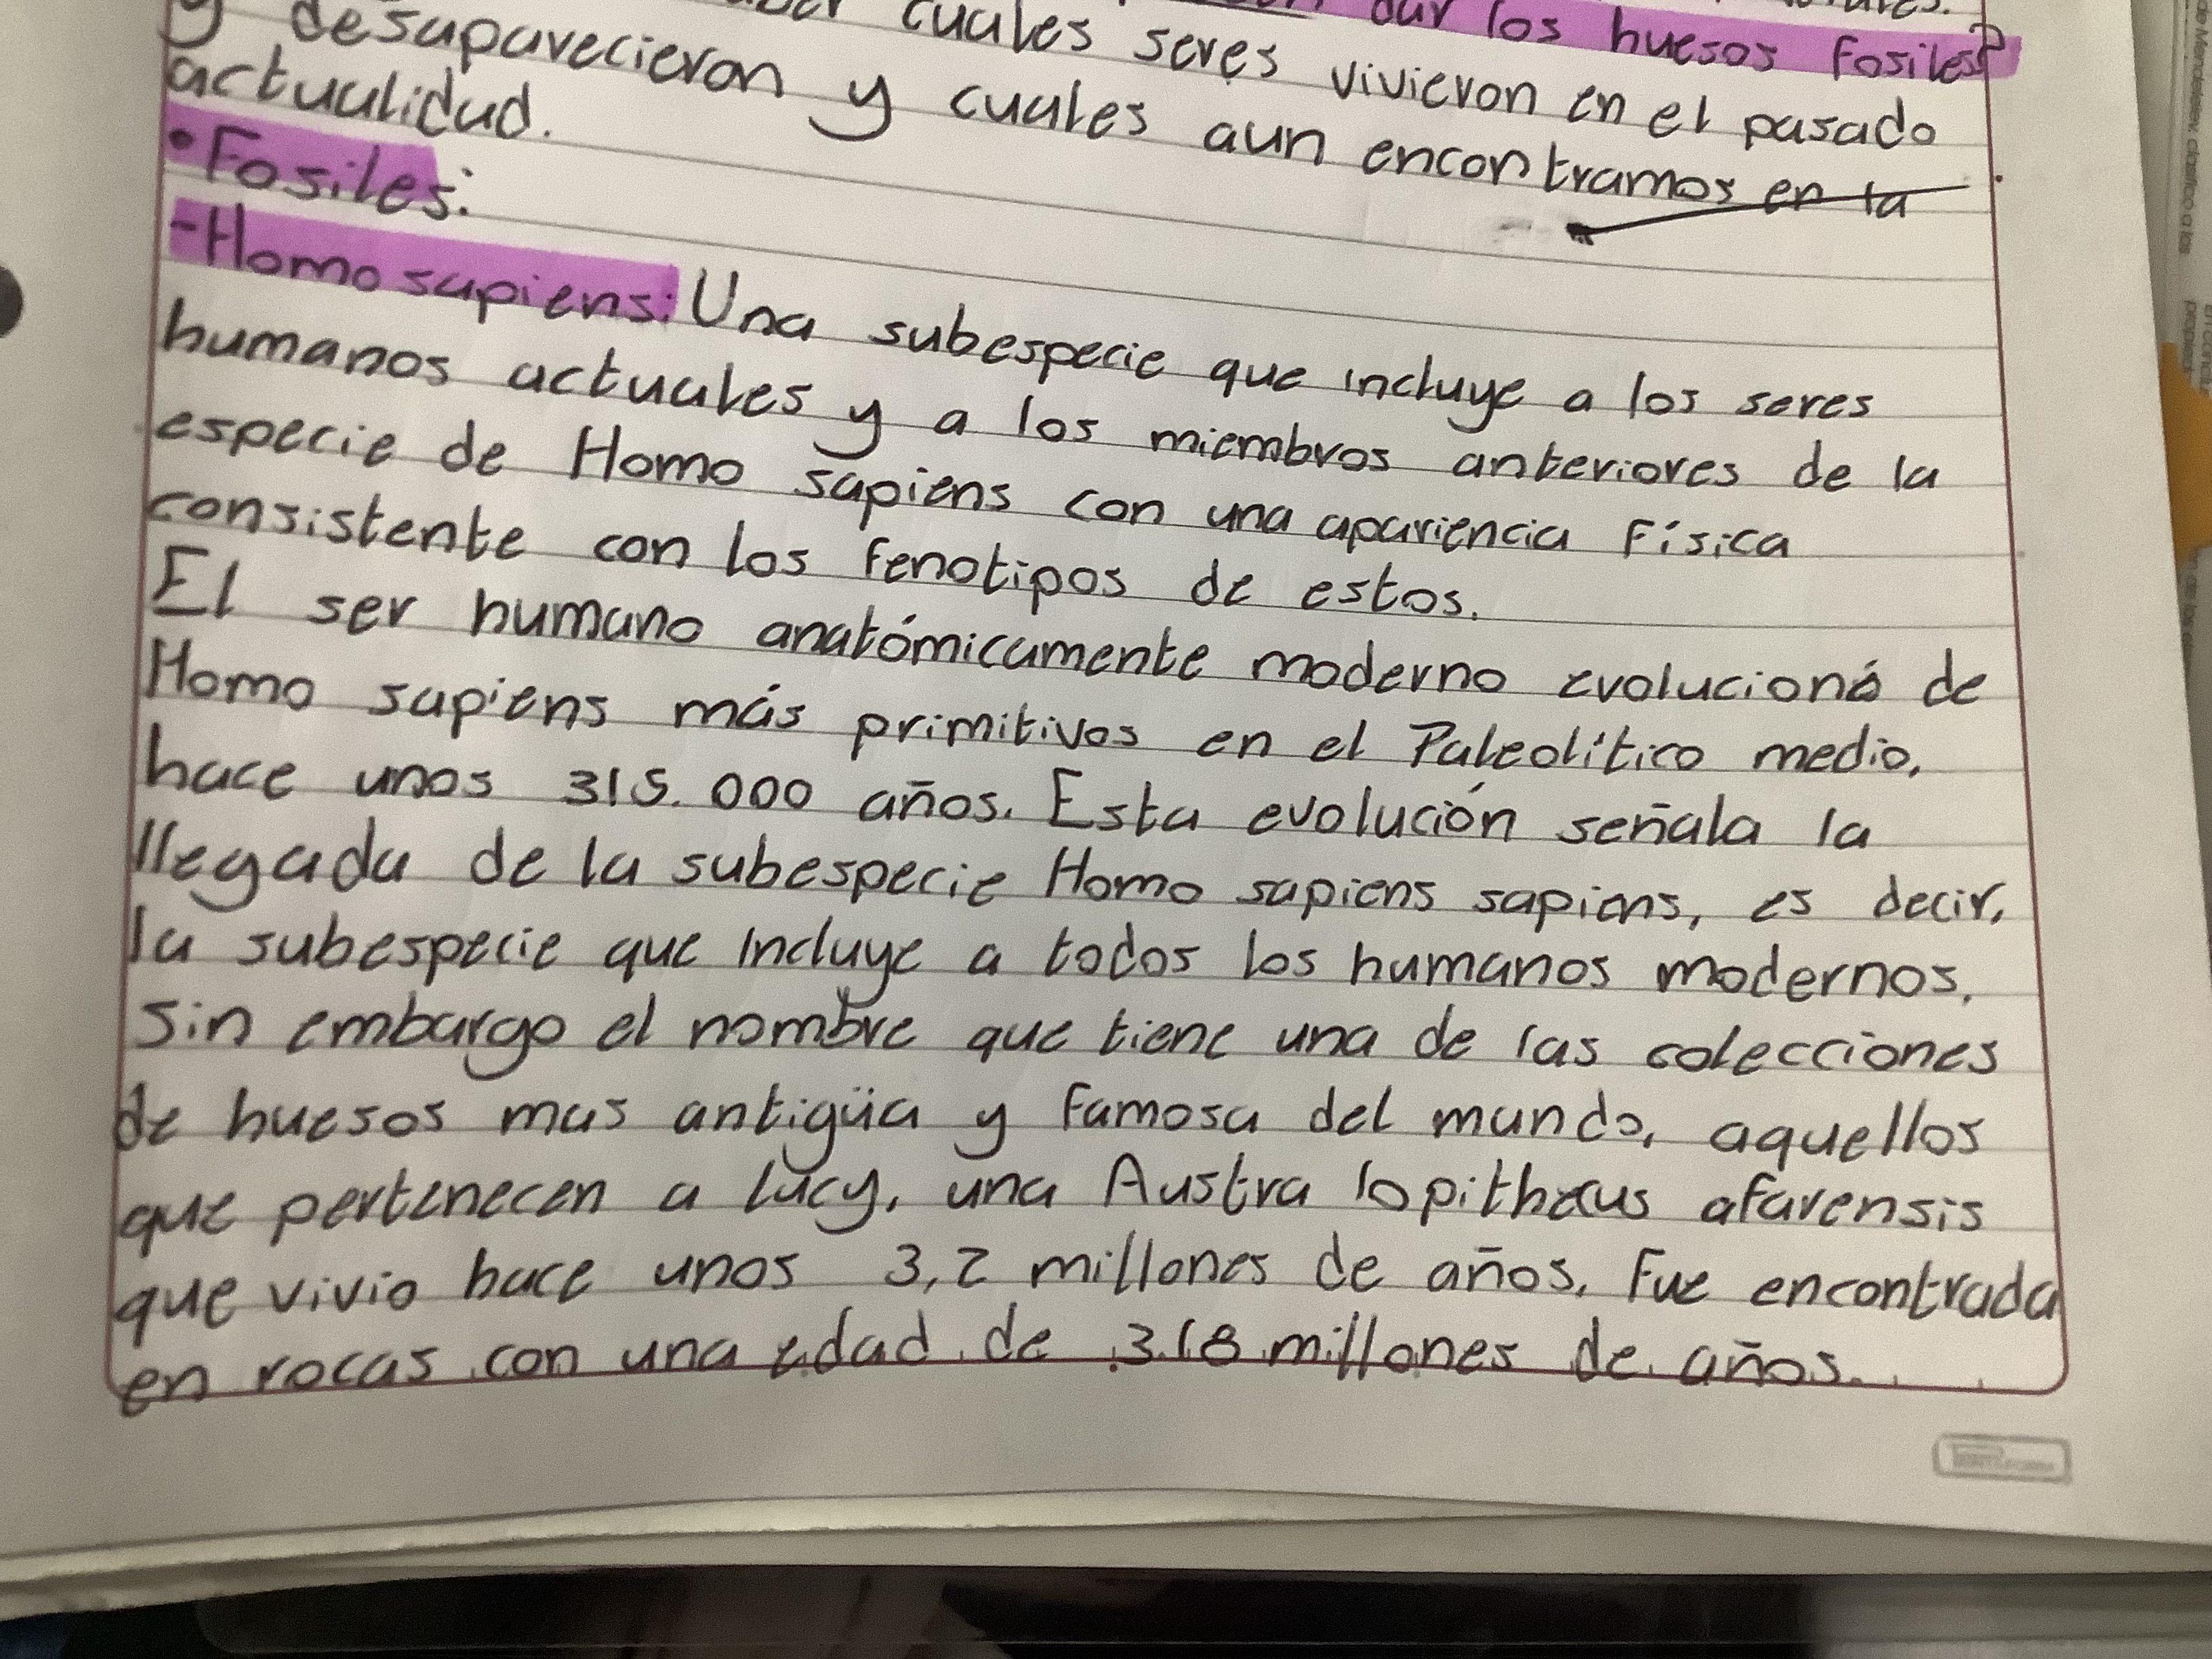 dar los huesos fosiles?
cuales seres vivieron en el pasado
y desaparecieron y cuales aun encontramos en la
actualidad.
•Fosiles:
-Homo sapiens: Una subespecie que incluye a los seres
humanos actuales y a los miembros anteriores de la
especie de Homo sapiens con una apariencia física
consistente con los fenotipos de estos.
El ser humano anatómicamente moderno evolucionó de
Homo sapiens más primitivos en el Paleolítico medio,
hace unos 315.000 años. Esta evolución señala la
llegada de la subespecie Homo sapiens sapiens, es decir,
la subespecie que incluye a todos los humanos modernos.
Sin embargo el nombre que tiene una de las colecciones
de huesos mas antigüa y famosa del mundo, aquellos
que pertenecen a lucy, una Austra lopithecus afarensis
que vivio hace unos 3,2 millones de años. Fue encontrada
en rocas con una edad de 3.18 millones de años.